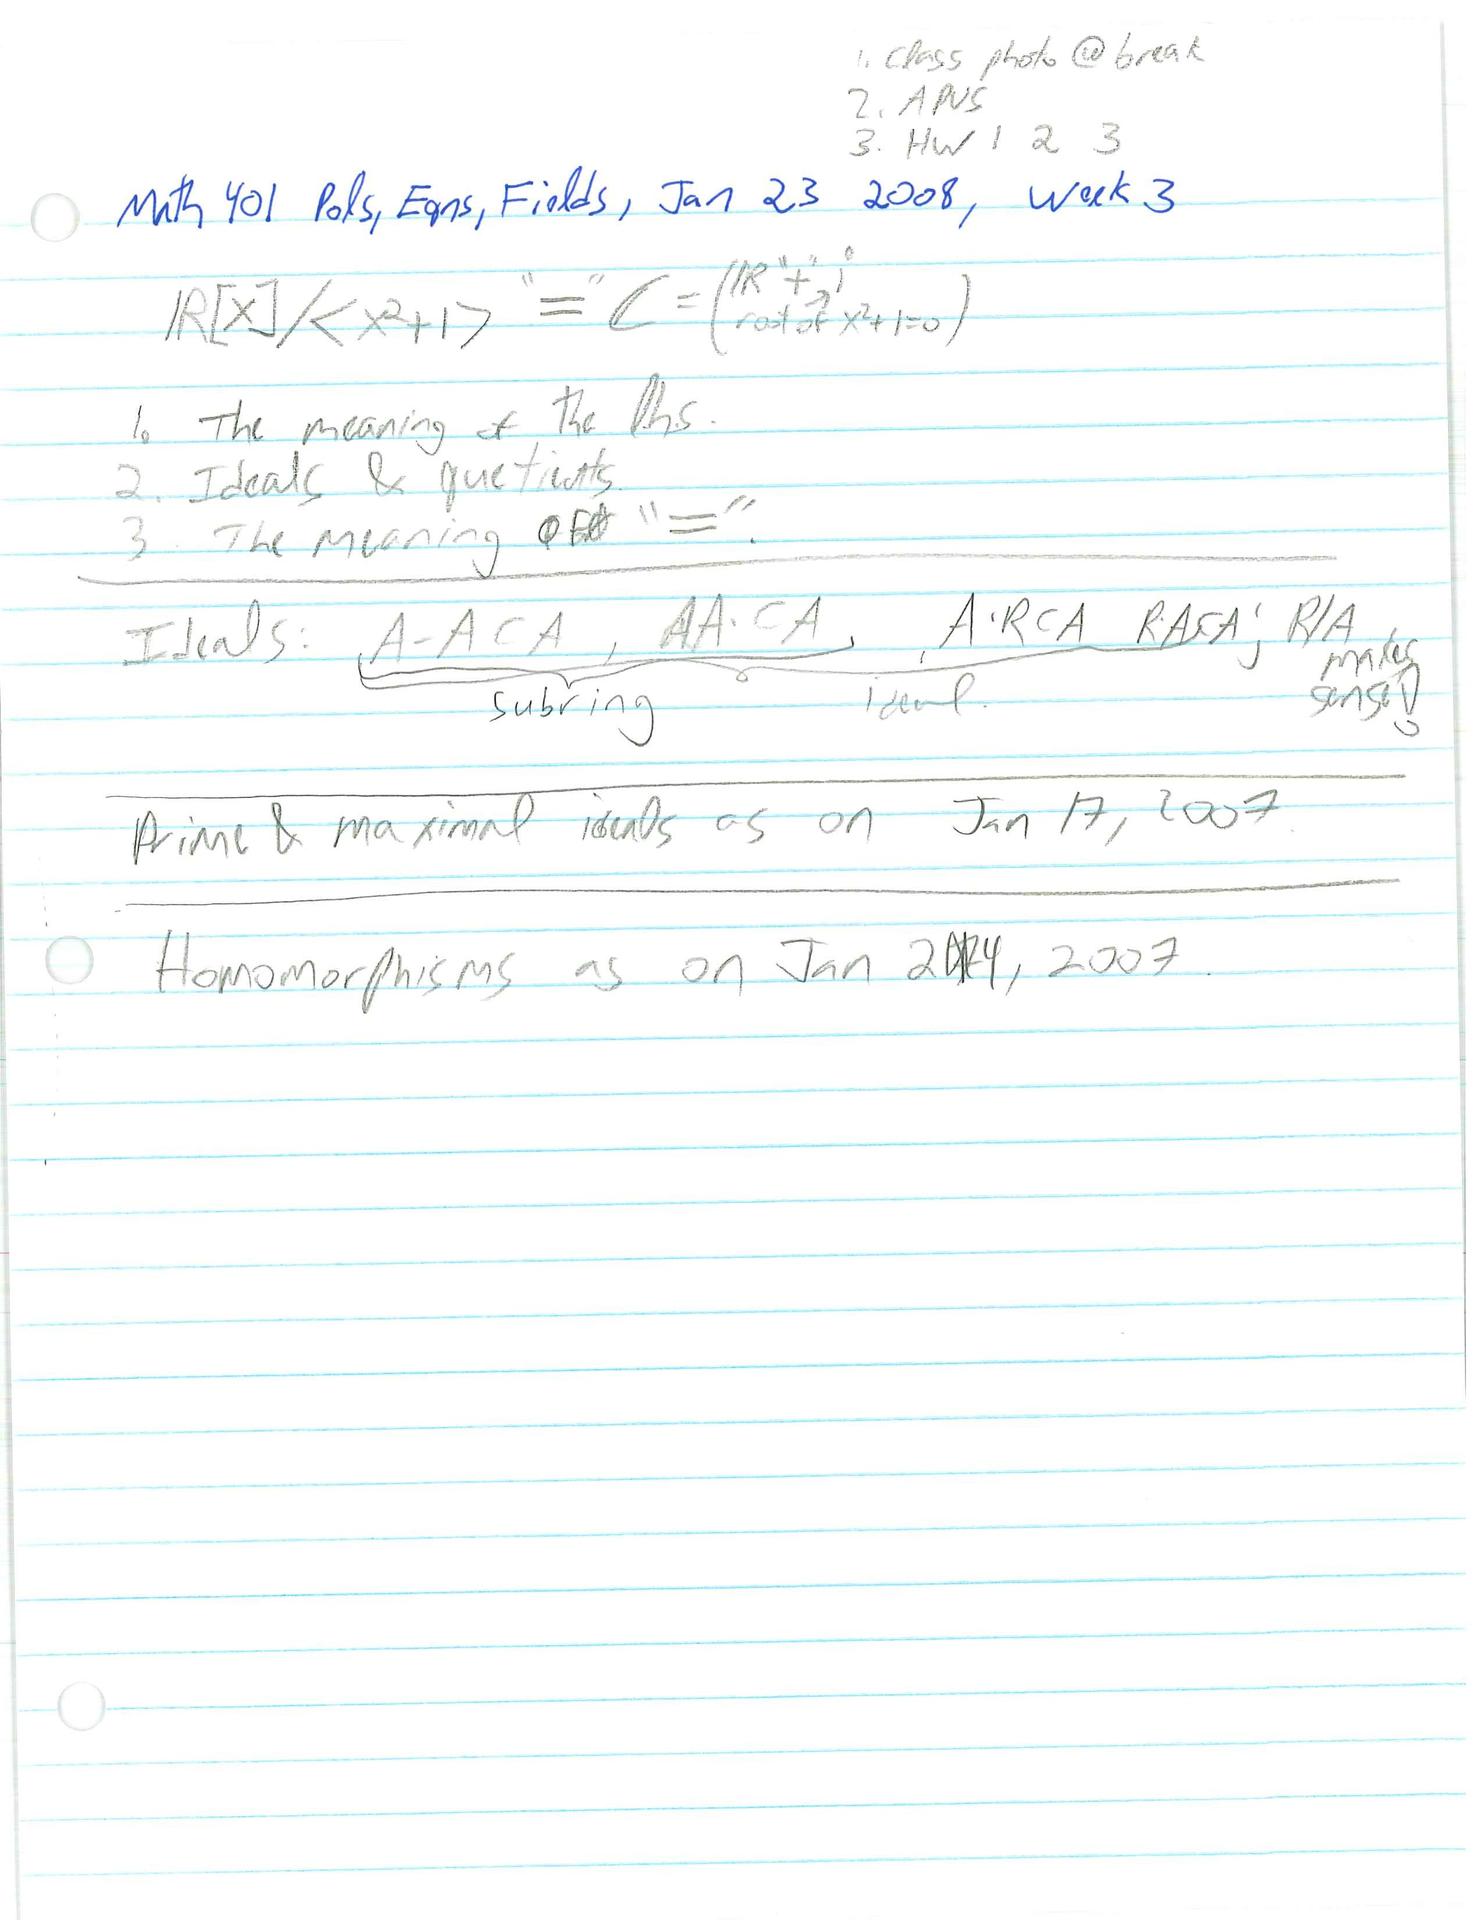 1. Class photo @ break
2. APVS
3. HW 1 2 3
Math 401 Pols, Eqns, Fields, Jan 23 2008, Week 3
ℝ[x]/<x²+1> "=" ℂ = (ℝ "+" i
root of x²+1=0)
1. The meaning of the lhs.
2. Ideals & quotients.
3. The meaning of "=".
Ideals: A-A⊂A, AA⊂A, A·R⊂A RA⊂A; R/A
makes
subring ideal. sense!
Prime & maximal ideals as on Jan 17, 2007.
Homomorphisms as on Jan 24, 2007.